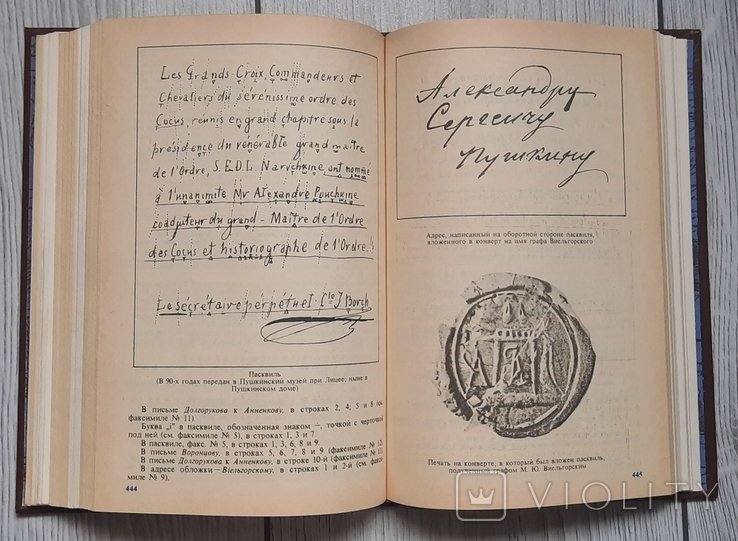 Les Grands-Croix, Commandeurs et
Chevaliers du sérénissime ordre des
Cocus, réunis en grand chapitre sous la
présidence du vénérable grand maître
de l'Ordre, S.E.D.L. Narychkine ont nommé
à l'unanimité Mr Alexandre Pouchkine
coadjuteur du grand-Maître de l'Ordre
des Cocus et historiographe de l'Ordre.
Le sécrétaire perpétuel: Borch
Пасквиль
(В 90-х годах передан в Пушкинский музей при Лицее, ныне в
Пушкинском доме)
В письме Долгорукова к Анненкову, в строках 2, 4, 5 и 8 (см.
факсимиле № 11).
Буква „i" в пасквиле, обозначенная знаком ÷, точкой с черточкой
под ней (см. факсимиле № 5), в строках 1, 3 и 7.
В пасквиле, факс. № 5, в строках 1, 3, 6, 8 и 9.
В письме Воронцову, в строках 5, 6, 7, 8 и 9 (факсимиле № 12).
В письме Долгорукова к Анненкову, в строке 10-й (факсимиле № 11).
В адресе обложки—Виельгорскому, в строках 1 и 2-й (см. факси-
миле № 9).
444
Александру
Сергеичу
Пушкину
Адрес, написанный на оборотной стороне пасквиля,
вложенного в конверт на имя графа Виельгорского
Печать на конверте, в который был вложен пасквиль,
полученный графом М. Ю. Виельгорским
445
VIOLITY